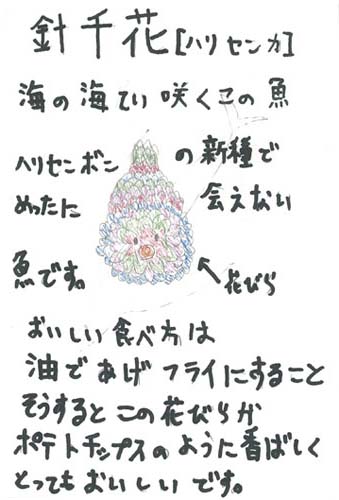 針千花[ハリセンカ]
海の海てい咲くこの魚
ハリセンボンの新種で
めったに会えない
魚です。
花びら
おいしい食べ方は
油であげフライにすること
そうするとこの花びらが
ポテトチップスのように香ばしく
とってもおいしいです。